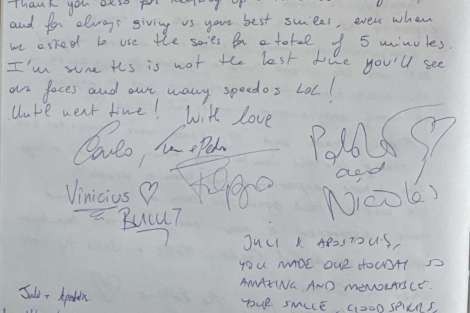 Thank you also for keeping up
and for always giving us your best smiles, even when
we asked to use the sails for a total of 5 minutes.
I'm sure ths is not the last time you'll see
our faces and our many speedos LOL!
Until next time! With love
Carlo,
Pablo
and
Vinicius ♡ Filippo Nicolas
JULI & APOSTOLIS,
YOU MADE OUR HOLIDAY SO
AMAZING AND MEMORABLE.
YOUR SMILE, GOOD SPIRITS,